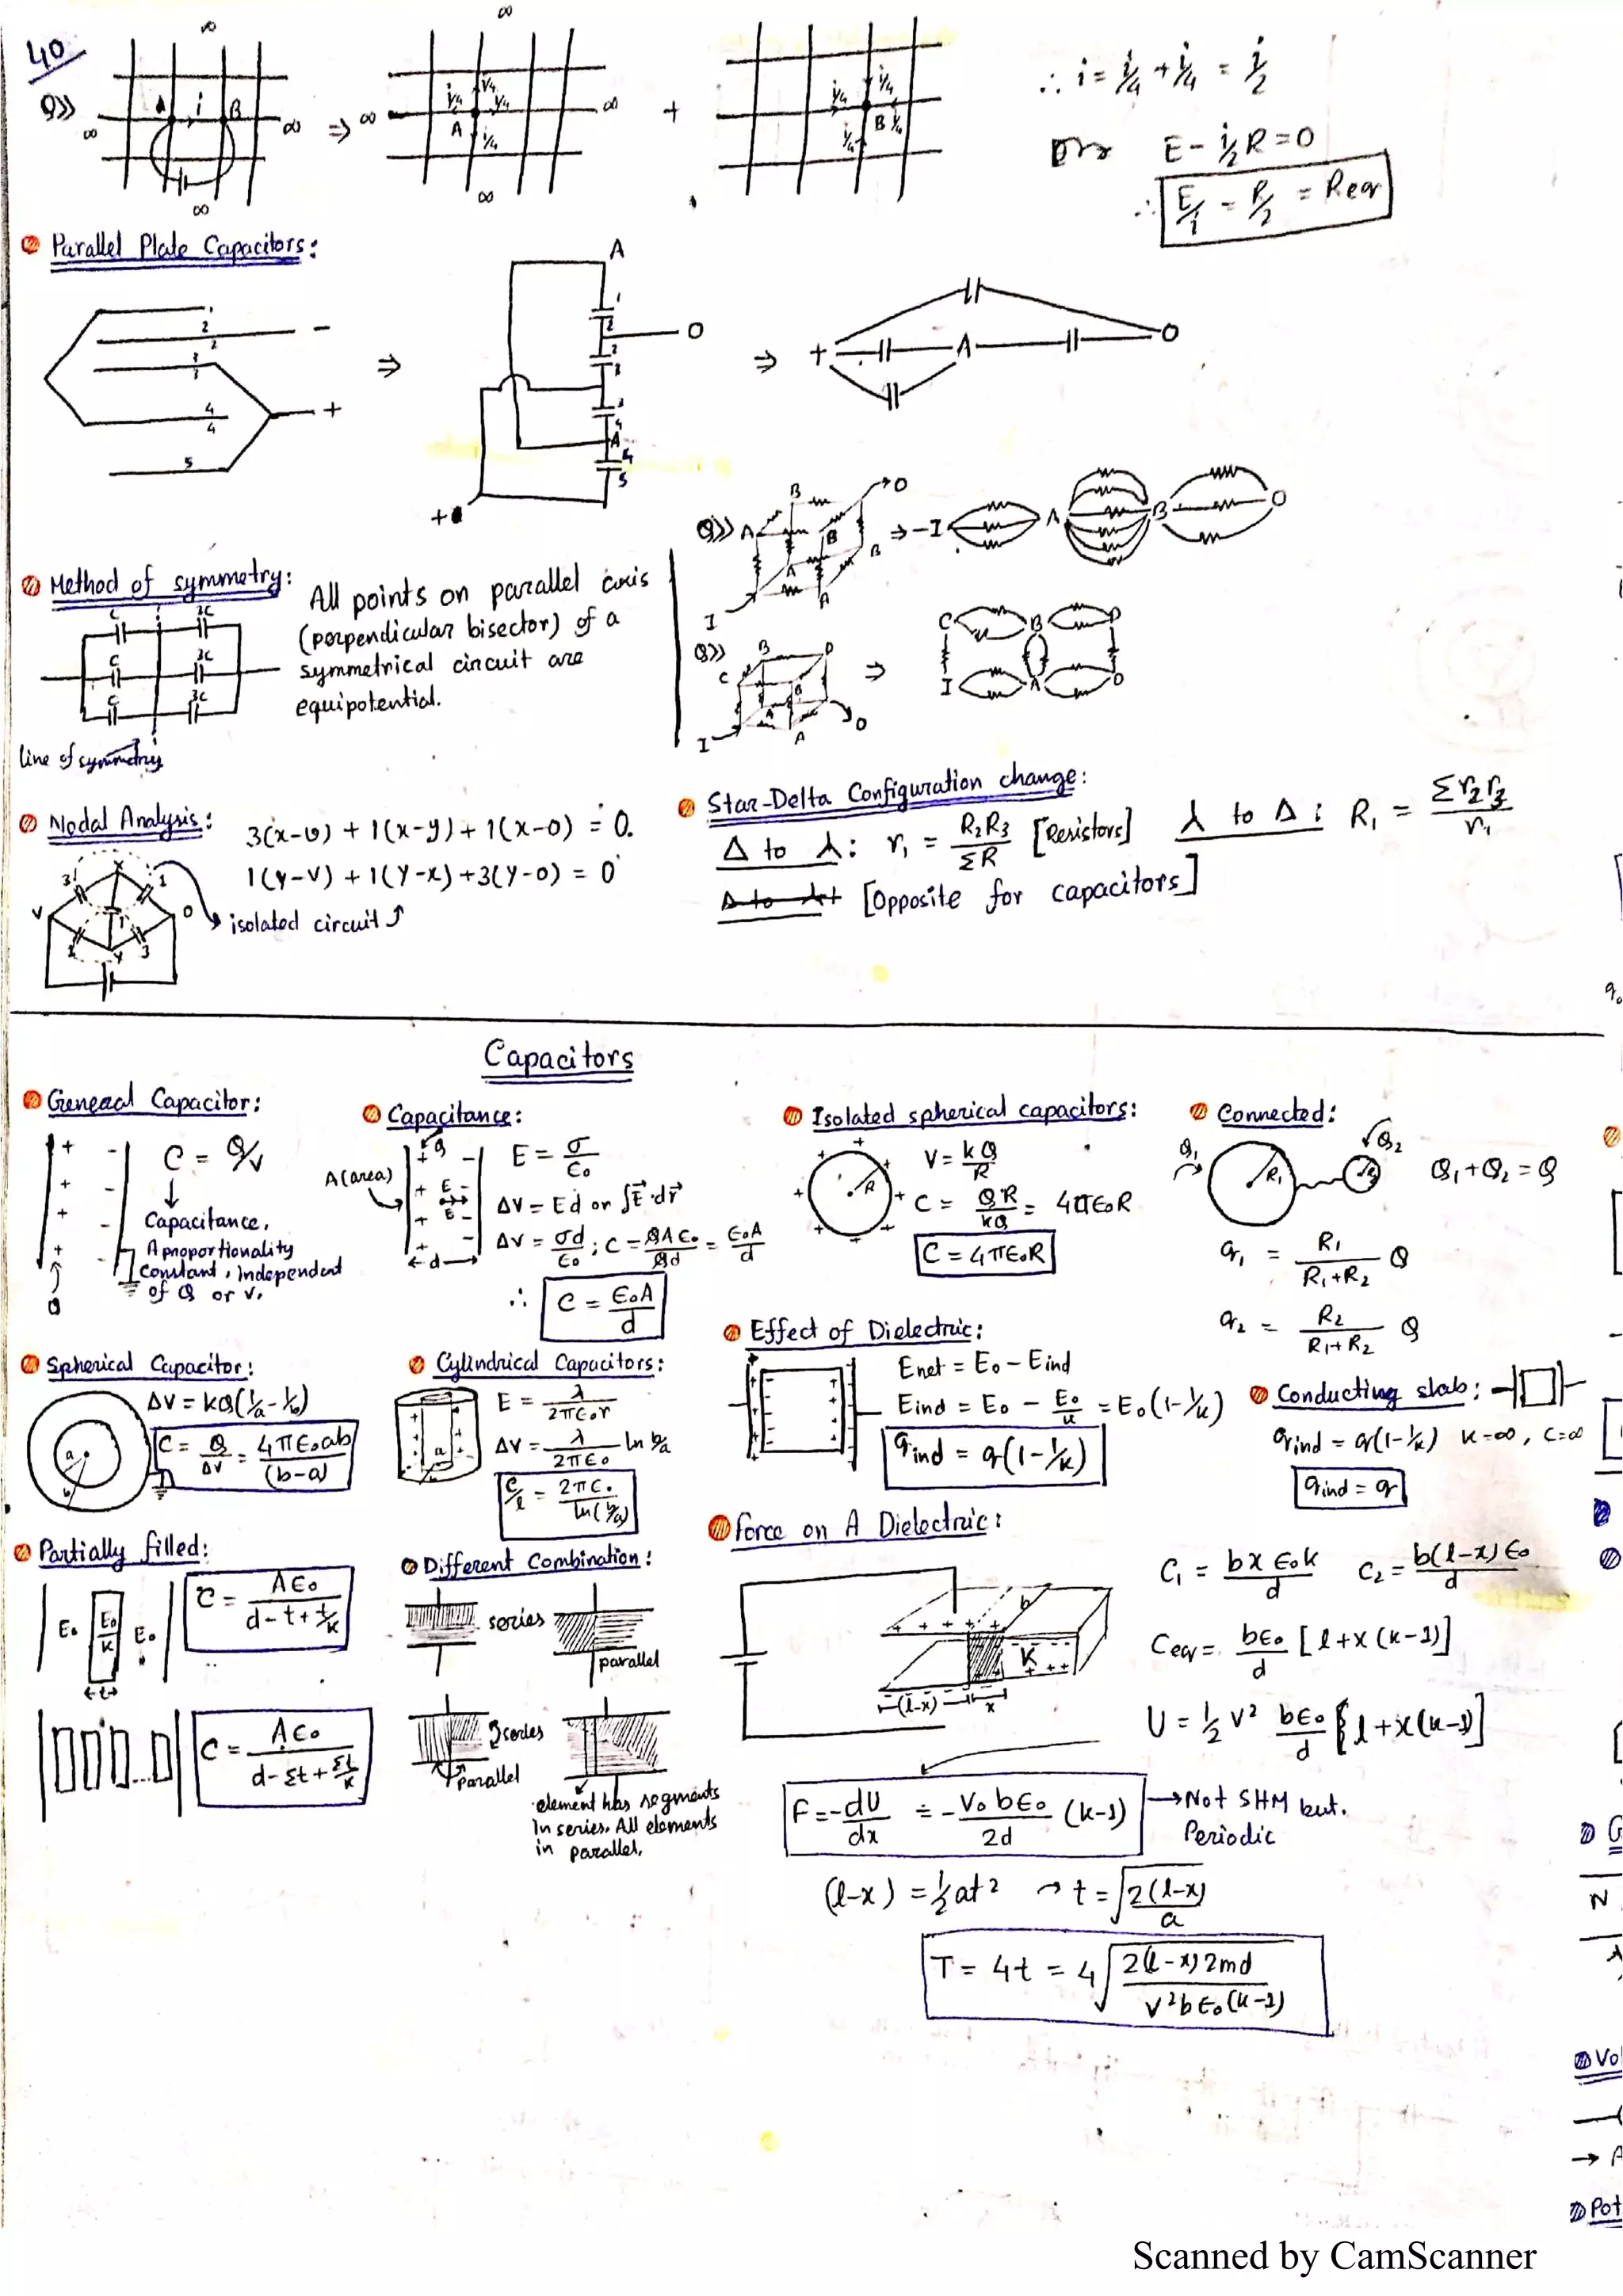 40
Q>>
∞ ∞ ∞ ∞
A i B
⇒
∞ ∞ ∞
i/4 i/4 i/4 i/4
A
+
i/4 i/4 i/4 i/4
B
∴ i = i/4 + i/4 = i/2
E - i/2 R = 0
∴ E/i = R/2 = Req
Parallel Plate Capacitors:
1
2
2
3
3
4
4
5
-
+
⇒
A
1
2
2
3
3
4
A
4
5
O
+
⇒
+ A O
Method of symmetry:
C 3C
C 3C
C 3C
line of symmetry
All points on parallel axis
(perpendicular bisector) of a
symmetrical circuit are
equipotential.
Q>> A B O B B A A I ⇒ -I A B O
Q>> C B D B A A I O ⇒ C B D I A O
Nodal Analysis:
3(x-v) + 1(x-y) + 1(x-0) = 0.
1(y-v) + 1(y-x) + 3(y-0) = 0
isolated circuit
V x 3 1 O 1 1 y 3
Star-Delta Configuration change:
Δ to ⅄: r₁ = R₂R₃/ΣR [Resistors] ⅄ to Δ: R₁ = Σr₂r₃/r₁
Δ to ⅄ [Opposite for capacitors]
Capacitors
General Capacitor:
C = Q/V
Capacitance,
A proportionality
Constant, independent
of Q or V.
Q
Capacitance:
A(area)
Q
E
E
d
E = σ/ϵ₀
ΔV = Ed or ∫E⃗·dr⃗
ΔV = σd/ϵ₀ ; C = QAϵ₀/Qd = ϵ₀A/d
∴ C = ϵ₀A/d
Isolated spherical capacitors:
R
V = kQ/R
C = QR/kQ = 4πϵ₀R
C = 4πϵ₀R
Connected:
Q₁ R₁ Q₂ R₂
Q₁ + Q₂ = Q
q₁ = R₁/(R₁+R₂) Q
q₂ = R₂/(R₁+R₂) Q
Spherical Capacitor:
a
b
ΔV = kQ(1/a - 1/b)
C = Q/ΔV = 4πϵ₀ab/(b-a)
Cylindrical Capacitors:
a
E = λ/2πϵ₀r
ΔV = λ/2πϵ₀ ln b/a
C/l = 2πϵ₀/ln(b/a)
Effect of Dielectric:
Enet = E₀ - Eind
Eind = E₀ - E₀/k = E₀(1-1/k)
qind = q(1-1/k)
Conducting slab:
qind = q(1-1/k) k=∞, C=∞
qind = q
Partially filled:
E₀ E₀/k E₀
t
C = Aϵ₀/(d-t+t/k)
C = Aϵ₀/(d-Σt+Σt/k)
Different Combination:
series
parallel
series
parallel
element has segments
in series. All elements
in parallel.
Force on A Dielectric:
b
K
(l-x) x
C₁ = bxϵ₀k/d C₂ = b(l-x)ϵ₀/d
Ceq = bϵ₀/d [l+x(k-1)]
U = 1/2 V² bϵ₀/d [l+x(k-1)]
F = -dU/dx = -V₀bϵ₀/2d (k-1) → Not SHM but.
Periodic
(l-x) = 1/2 at² → t = √(2(l-x)/a)
T = 4t = 4√(2(l-x)2md/V²bϵ₀(k-1))
Vol
→ A
Pot
Scanned by CamScanner